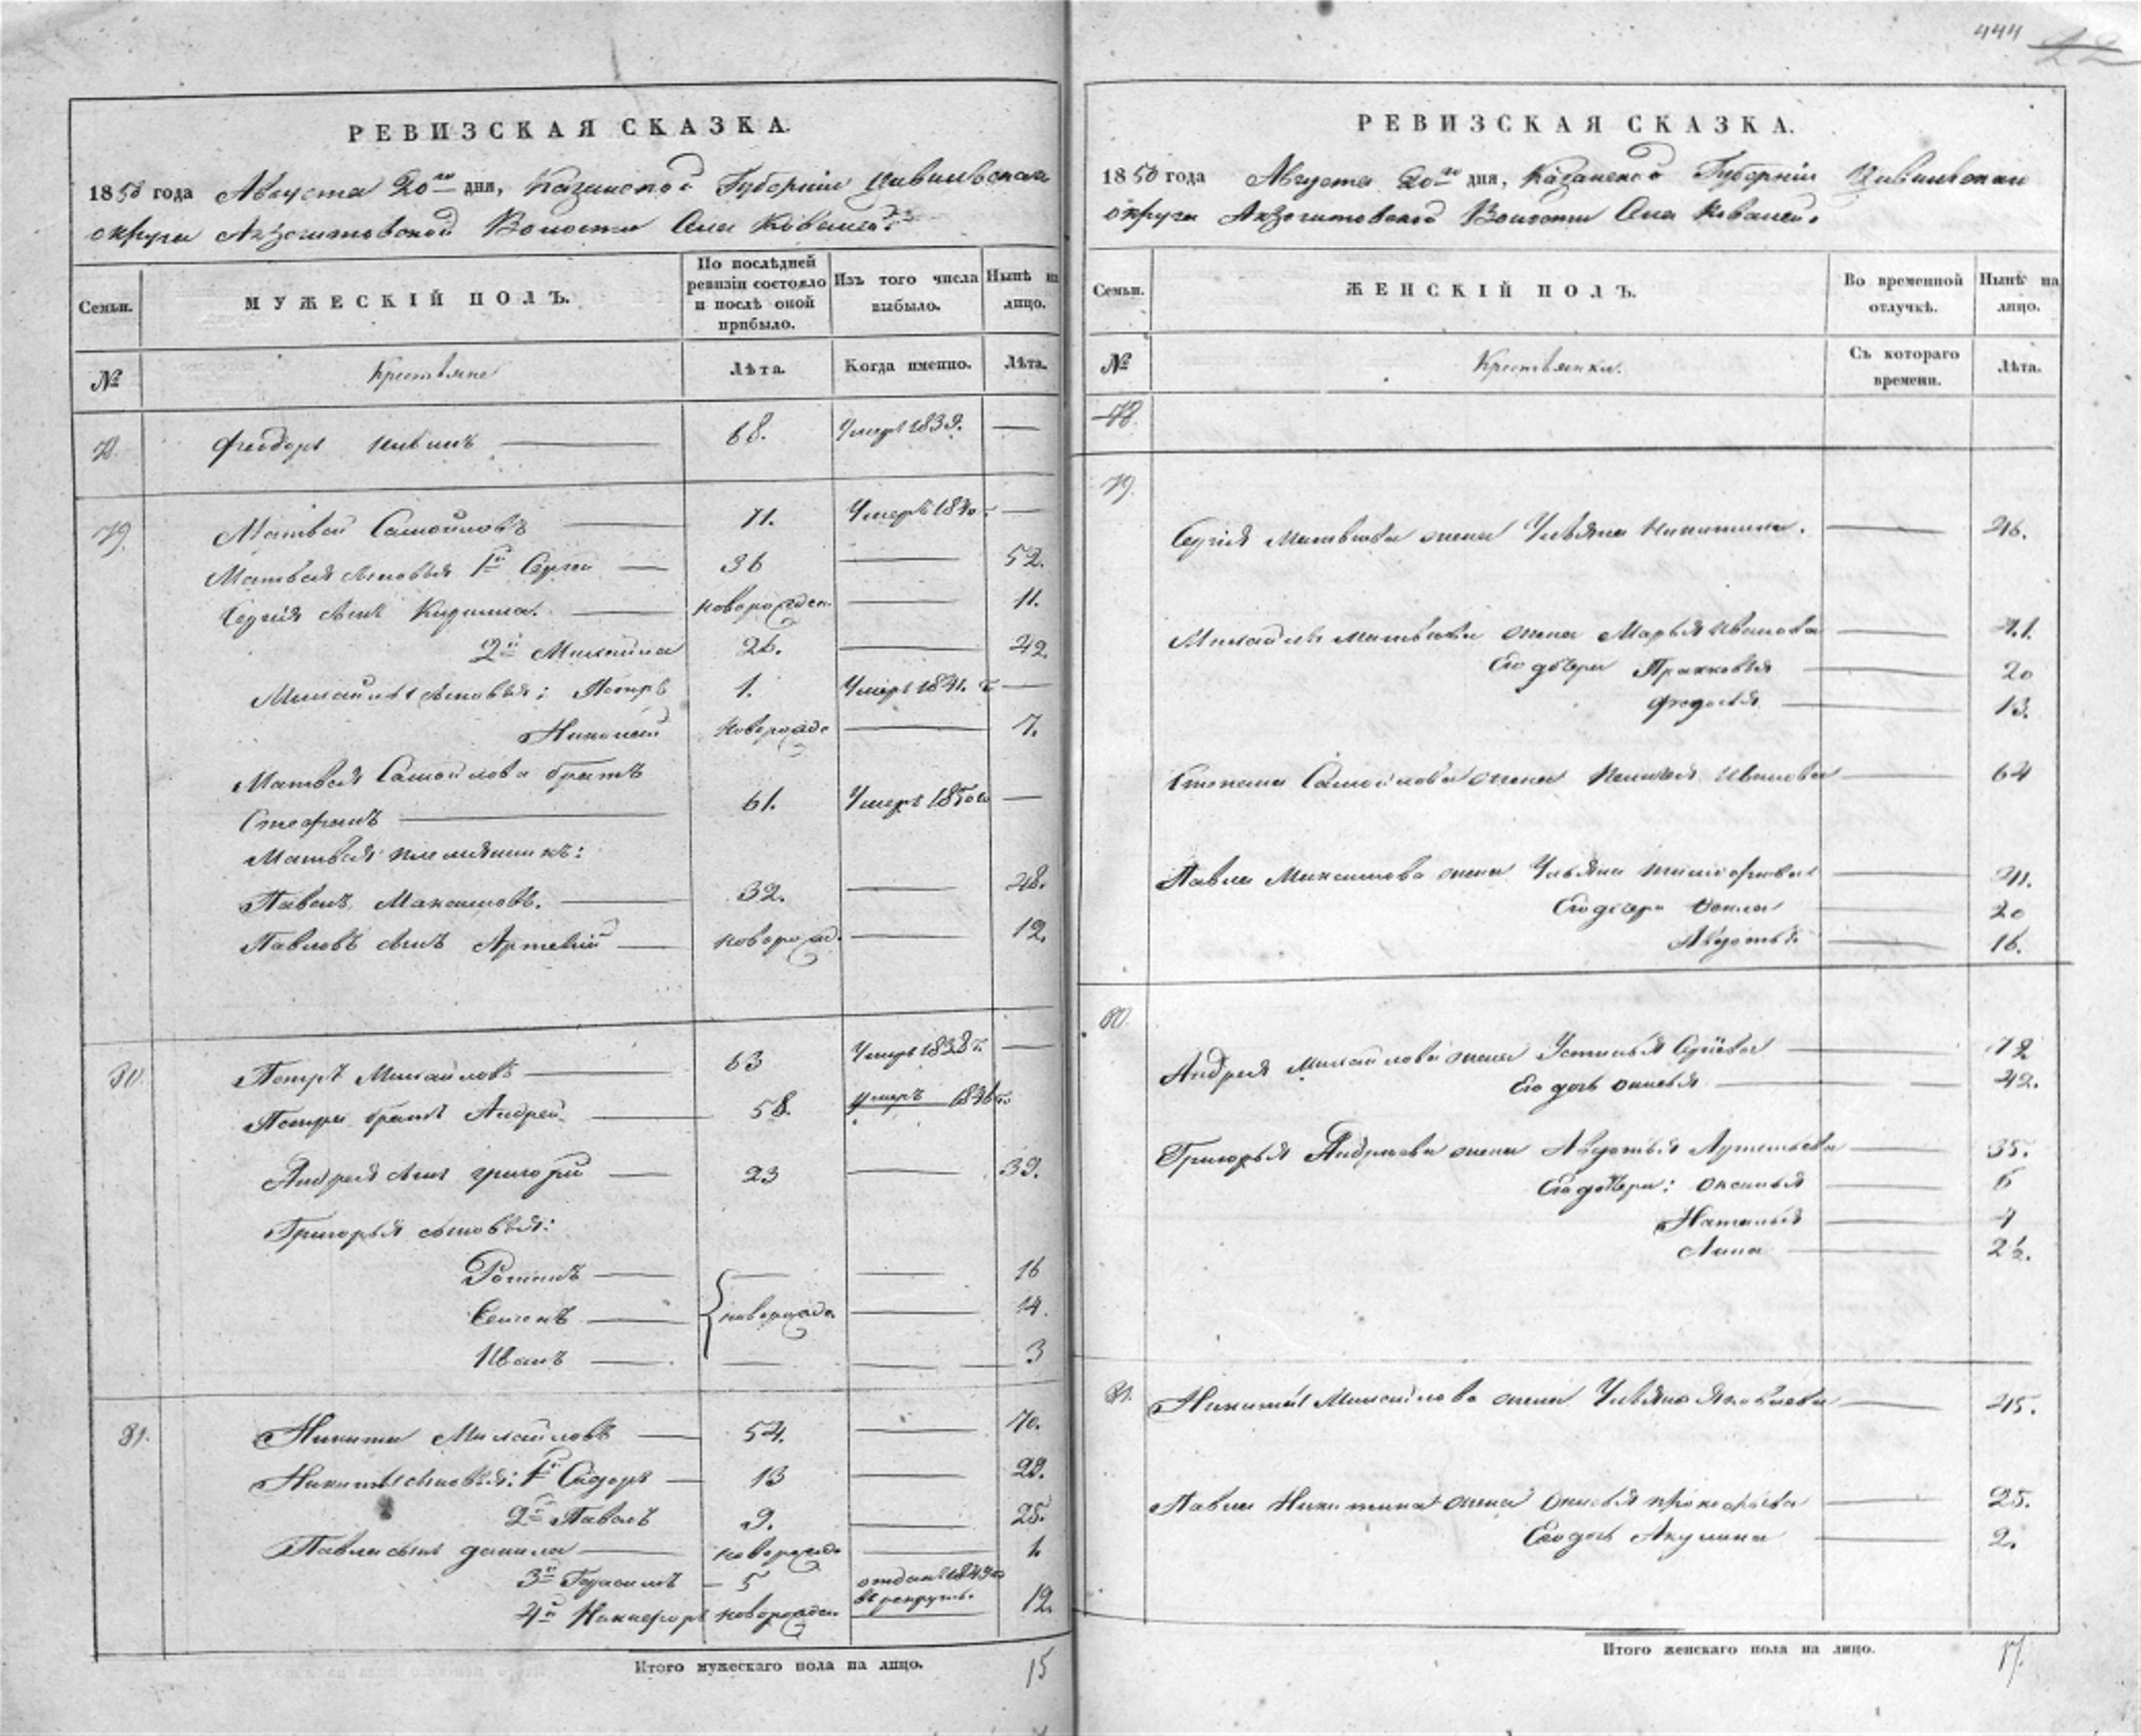 444 22
РЕВИЗСКАЯ СКАЗКА.
1850 года Августа 20го дня, Казанской Губернии Цивильскаго
округа Акзегитовской Волости Села Ковалей
Семьи.
МУЖЕСКІЙ ПОЛЪ.
По послѣдней ревизіи состояло и послѣ оной прибыло.
Изъ того числа выбыло.
Нынѣ на лицо.
№
Крестьяне
Лѣта.
Когда именно.
Лѣта.
78. Феодоръ 68. Умеръ 1839. —
79. Матвей Самойловъ 71. Умеръ 1840 —
Матвея сыновья 1й Сергей 36 — 52.
Сергія сынъ Кирилла. новорожден. — 11.
2й Михайла 26. — 42.
Михайлы сыновья: Петръ 1. Умеръ 1841. г. —
Николай новорожде — 7.
Матвея Самойлова братъ
Стефанъ 61. Умеръ 1850го —
Матвея племянникъ:
Павелъ Максимовъ. 32. — 48.
Павловъ сынъ Артемій новорожд. — 12.
80. Петръ Михайловъ 63 Умеръ 1838 г. —
Петра братъ Андрей 58. умеръ 1836 г.
Андрея сынъ григорій 23 — 39.
Григорья сыновья:
Романъ — 16
Семенъ новорожде. — 14.
Иванъ — — 3
81. Никита Михайловъ 54. — 70.
Никиты сыновья: 1й Сидоръ 13 — 29.
2й Павелъ 9. — 25.
Павла сынъ данила новорожде — 1.
3й Герасимъ 5 отданъ 1849го
въ рекруты.
4й Никифоръ новорожден — 12.
Итого мужескаго пола на лицо. 15
РЕВИЗСКАЯ СКАЗКА.
1850 года Августа 20го дня, Казанской Губерніи Цивильскаго
округа Акзегитовской Волости Села Ковалей.
Семьи.
ЖЕНСКІЙ ПОЛЪ.
Во временной отлучкѣ.
Нынѣ на лицо.
№
Крестьянки.
Съ котораго времени.
Лѣта.
78.
79.
Сергія Матвеева жена Ульяна Никитина. — 46.
Михайлы Матвеева жена Марья Иванова — 41.
Его дочери Прасковья — 20
Федосья — 13.
Степана Самойлова жена Иванова — 64
Павла Максимова жена Ульяна Тимофеева — 41.
Его дочери Фекла — 20
Авдотья — 16.
80.
Андрея Михайлова жена Устинья Сергіева — 72
Его дочь — 42.
Григорья Андреева жена Авдотья Артемьева — 35.
Его дочери: Оксинья — 6
Наталья — 4
Анна — 2½.
81. Никиты Михайлова жена Ульяна Яковлева — 45.
Павла Никитина жена Прокофьева — 25.
Его дочь Акулина — 2.
Итого женскаго пола на лицо. 17.